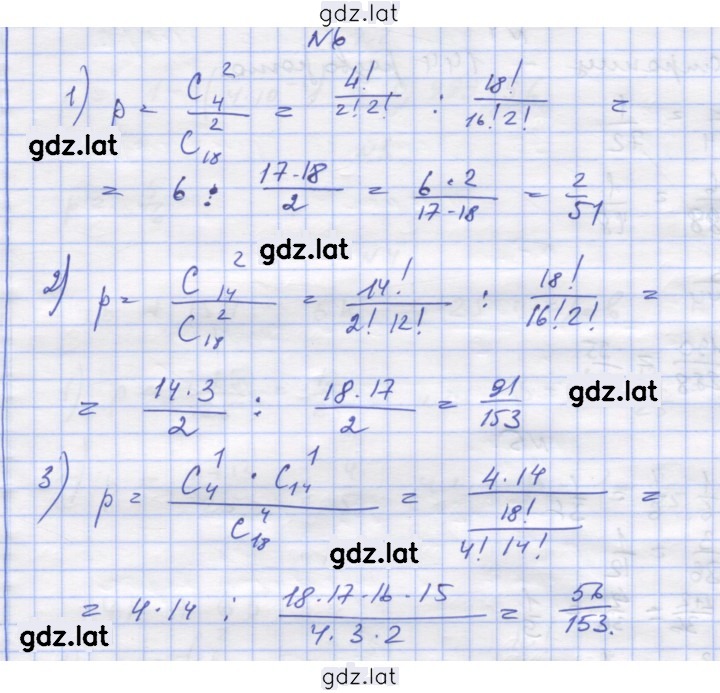 gdz.lat
N6
1) p = C₄² / C₁₈² = 4! / 2! 2! : 18! / 16! 2! =
gdz.lat
= 6 : 17 - 18 / 2 = 6 · 2 / 17 - 18 = 2 / 51
gdz.lat
2) p = C₁₄² / C₁₈² = 14! / 2! 12! : 18! / 16! 2! =
= 14 · 3 / 2 : 18 . 17 / 2 = 91 / 153
gdz.lat
3) p = C₄¹ · C₁₄¹ / C₁₈⁴ = 4 · 14 / 18! / 4! 14! =
gdz.lat
= 4 · 14 : 18 · 17 · 16 · 15 / 4 · 3 · 2 = 56 / 153.
gdz.lat
gdz.lat